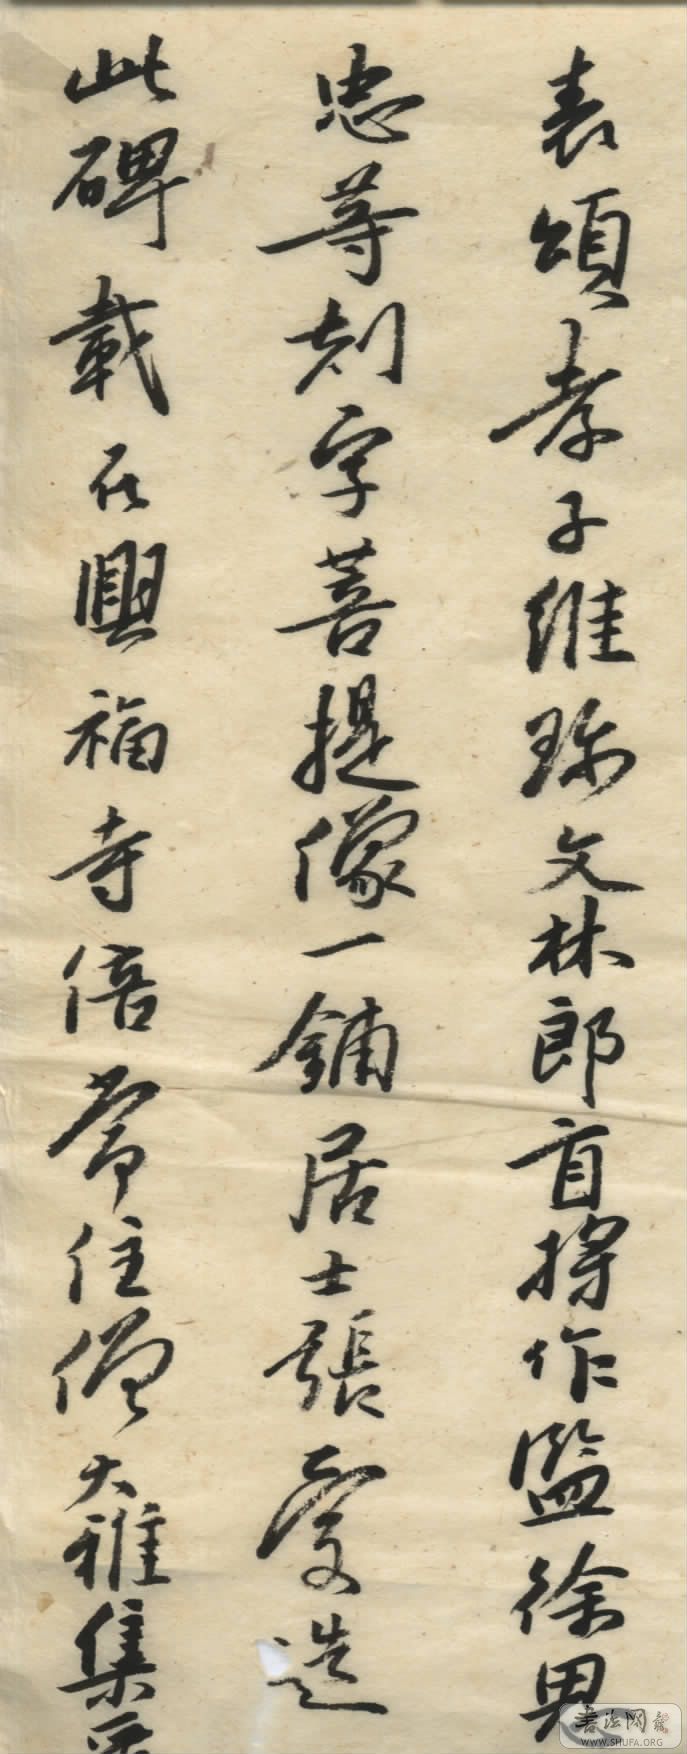 表頌孝子維珎文林郎盲捋作監徐思
忠等刻字菩提像一鋪居士張愛造
此碑載在興福寺倍常住僧大雅集晋
書法网
WWW.SHUFA.ORG